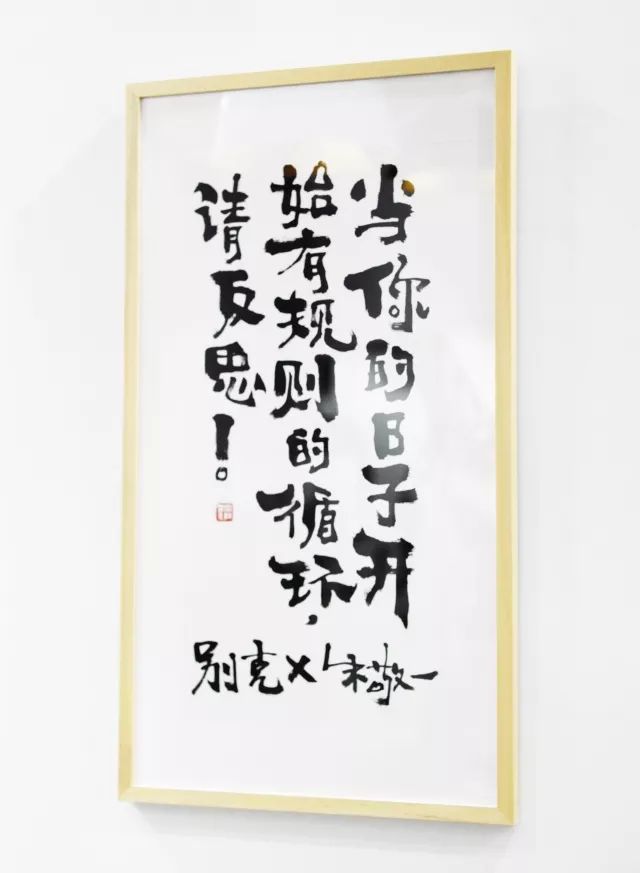 当你的日子开
始有规则的循环，
请反思！
别克×朱敬一